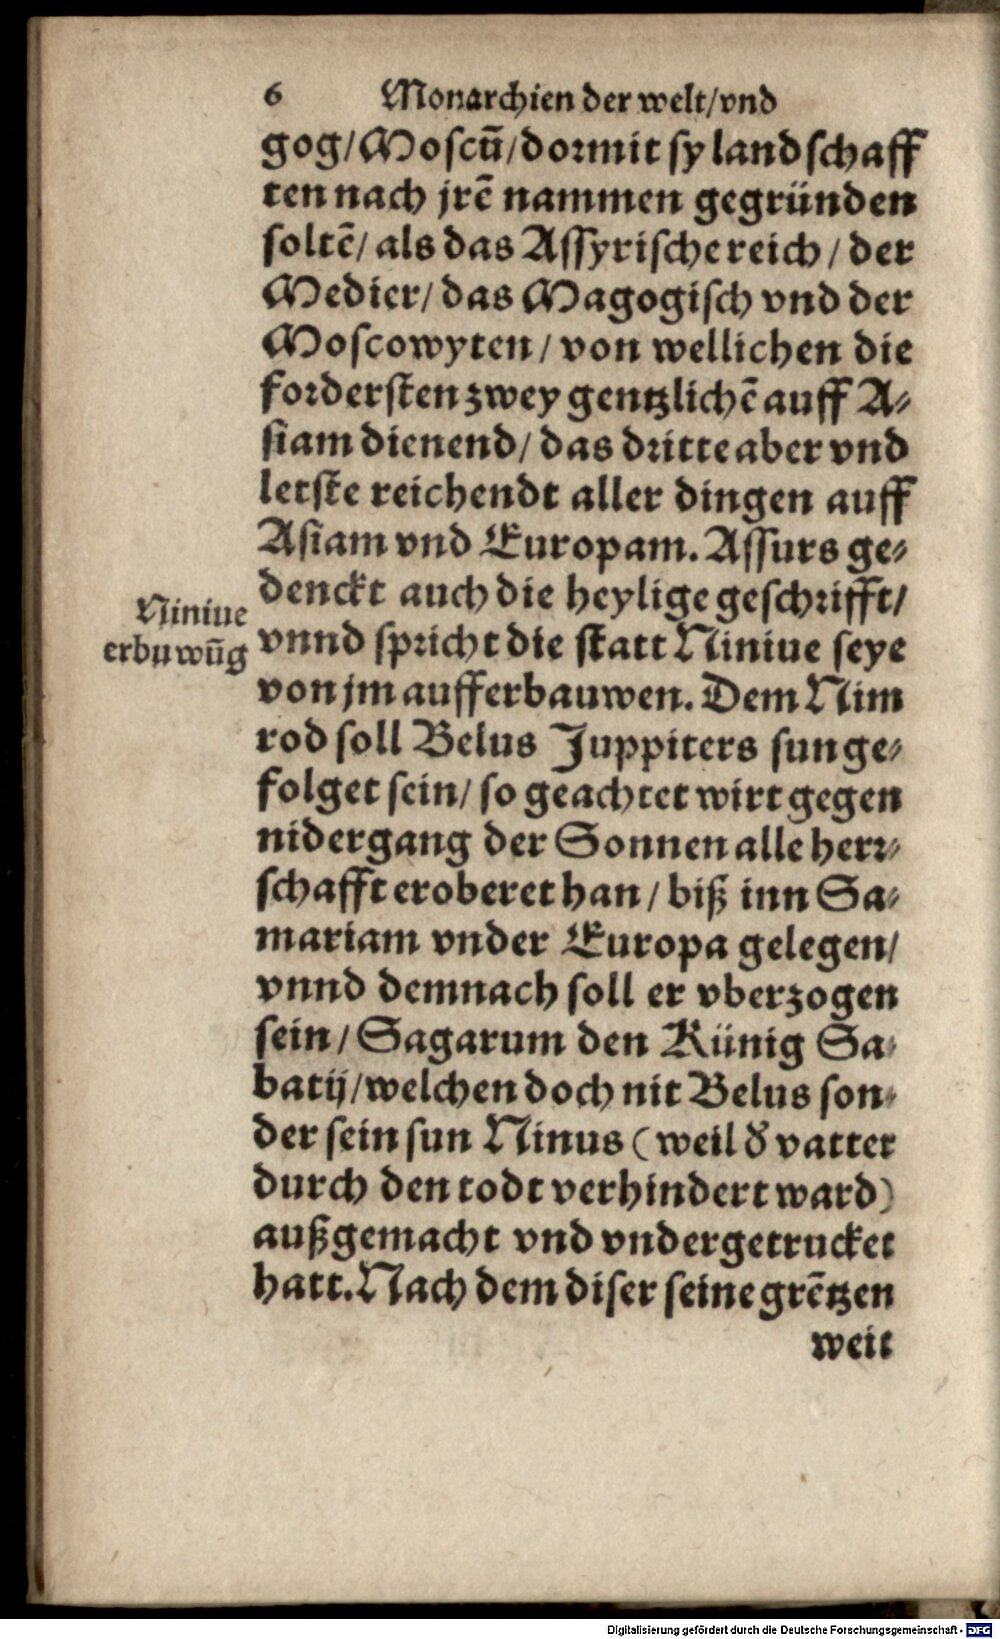 6 Monarchien der welt/vnd
gog/Moscū/dormit sy landschaff
ten nach jrē nammen gegründen
soltē/ als das Assyrische reich/ der
Medier/ das Magogisch vnd der
Moscowyten/ von wellichen die
fordersten zwey gentzlichē auff A-
siam dienend/ das dritte aber vnd
letste reichendt aller dingen auff
Asiam vnd Europam. Assurs ge-
denckt auch die heylige geschrifft/
Niniue
erbuwūg
vnnd spricht die statt Niniue seye
von jm aufferbauwen. Dem Nim
rod soll Belus Juppiters sun ge-
folget sein/ so geachtet wirt gegen
nidergang der Sonnen alle herr-
schafft eroberet han/ biß inn Sa-
mariam vnder Europa gelegen/
vnnd demnach soll er vberzogen
sein/ Sagarum den Künig Sa-
batij/welchen doch nit Belus son-
der sein sun Ninus (weil d̄ vatter
durch den todt verhindert ward)
außgemacht vnd vndergetrucket
hatt. Nach dem diser seine grētzen
weit
Digitalisierung gefördert durch die Deutsche Forschungsgemeinschaft - DFG